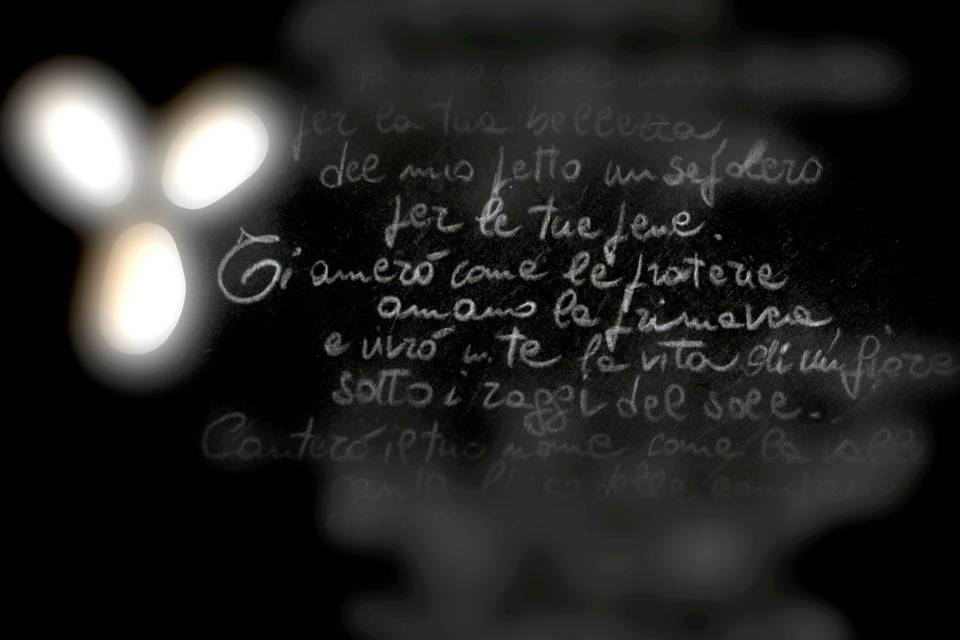 del mio cuore una
per la tua bellezza
del mio petto un sepolcro
per le tue pene.
Ti ameró come le praterie
amano la primavera,
e vivró in te la vita di un fiore
sotto i raggi del sole.
Canteró il tuo nome come la valle
canta l'eco delle